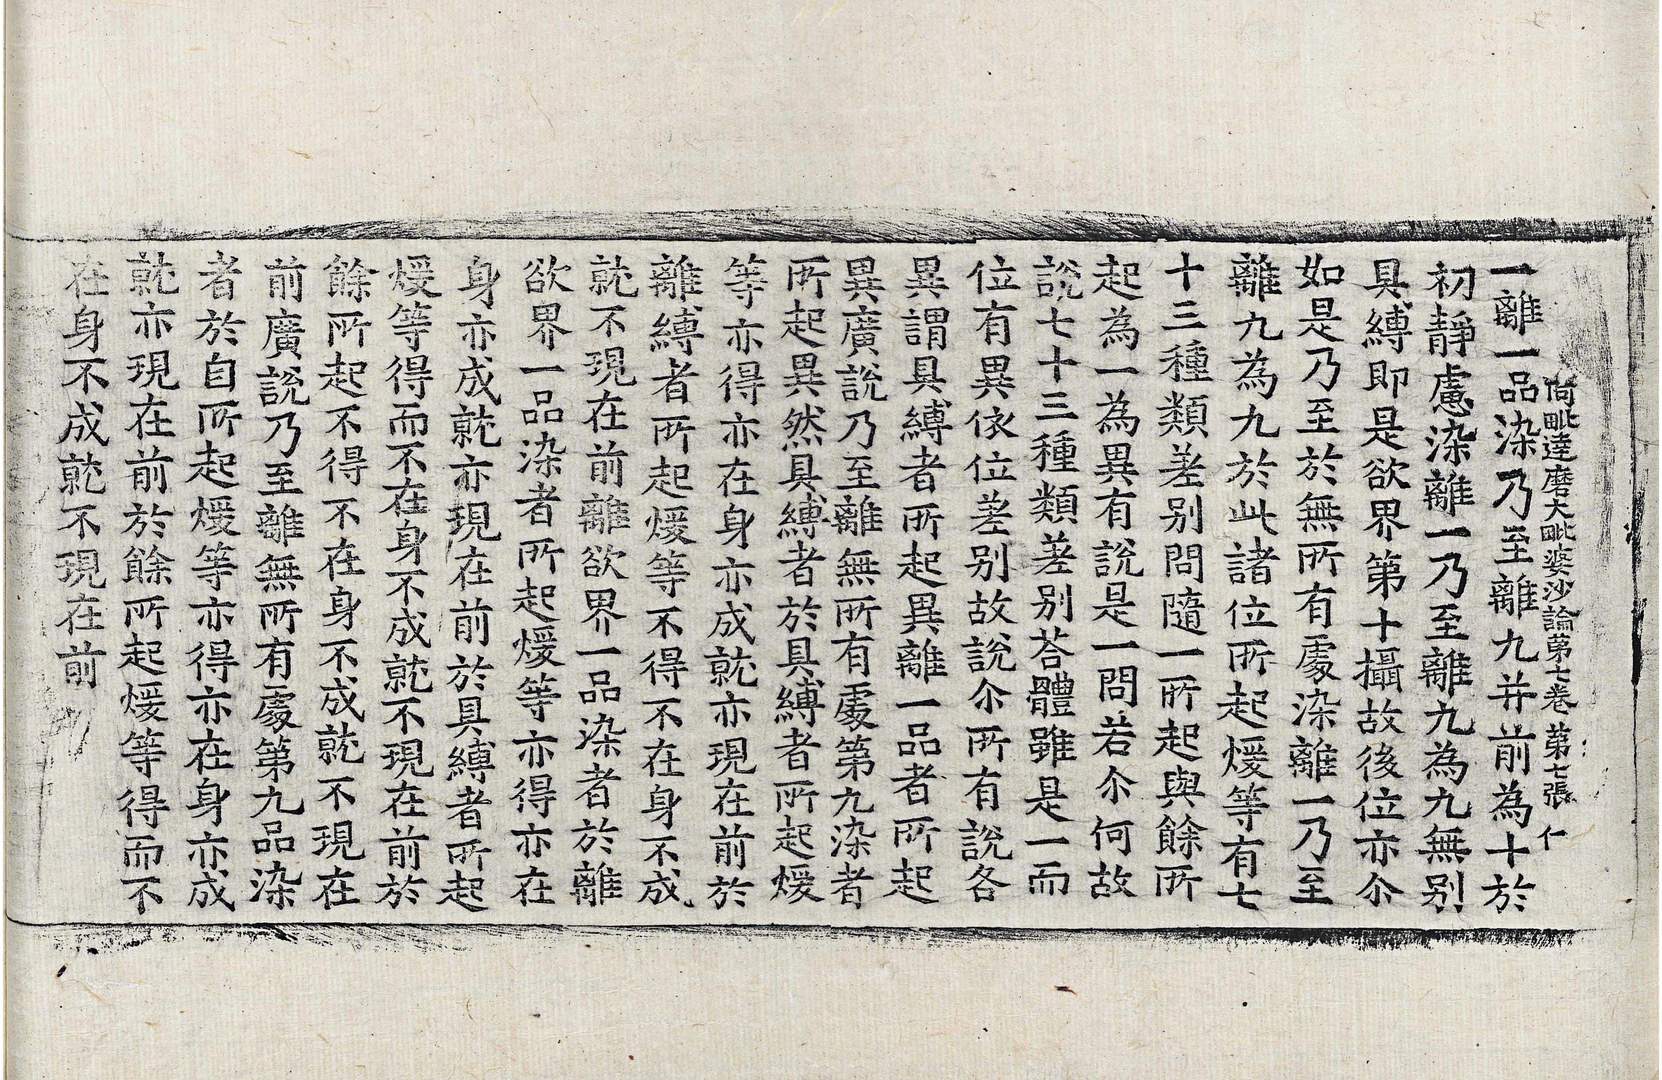 一離一品染乃至離九并前為十於
阿毗達磨大毗婆沙論第七卷 第七張 仁
初靜慮染離一乃至離九為九無別
具縛即是欲界第十攝故後位亦尒
如是乃至於無所有處染離一乃至
離九為九於此諸位所起煖等有七
十三種類差別問隨一所起與餘所
起為一為異有說是一問若尒何故
說七十三種類差別荅體雖是一而
位有異依位差別故說尒所有說各
異謂具縛者所起異離一品者所起
異廣說乃至離無所有處第九染者
所起異然具縛者於具縛者所起煖
等亦得亦在身亦成就亦現在前於
離縛者所起煖等不得不在身不成
就不現在前離欲界一品染者於離
欲界一品染者所起煖等亦得亦在
身亦成就亦現在前於具縛者所起
煖等得而不在身不成就不現在前於
餘所起不得不在身不成就不現在
前廣說乃至離無所有處第九品染
者於自所起煖等亦得亦在身亦成
就亦現在前於餘所起煖等得而不
在身不成就不現在前